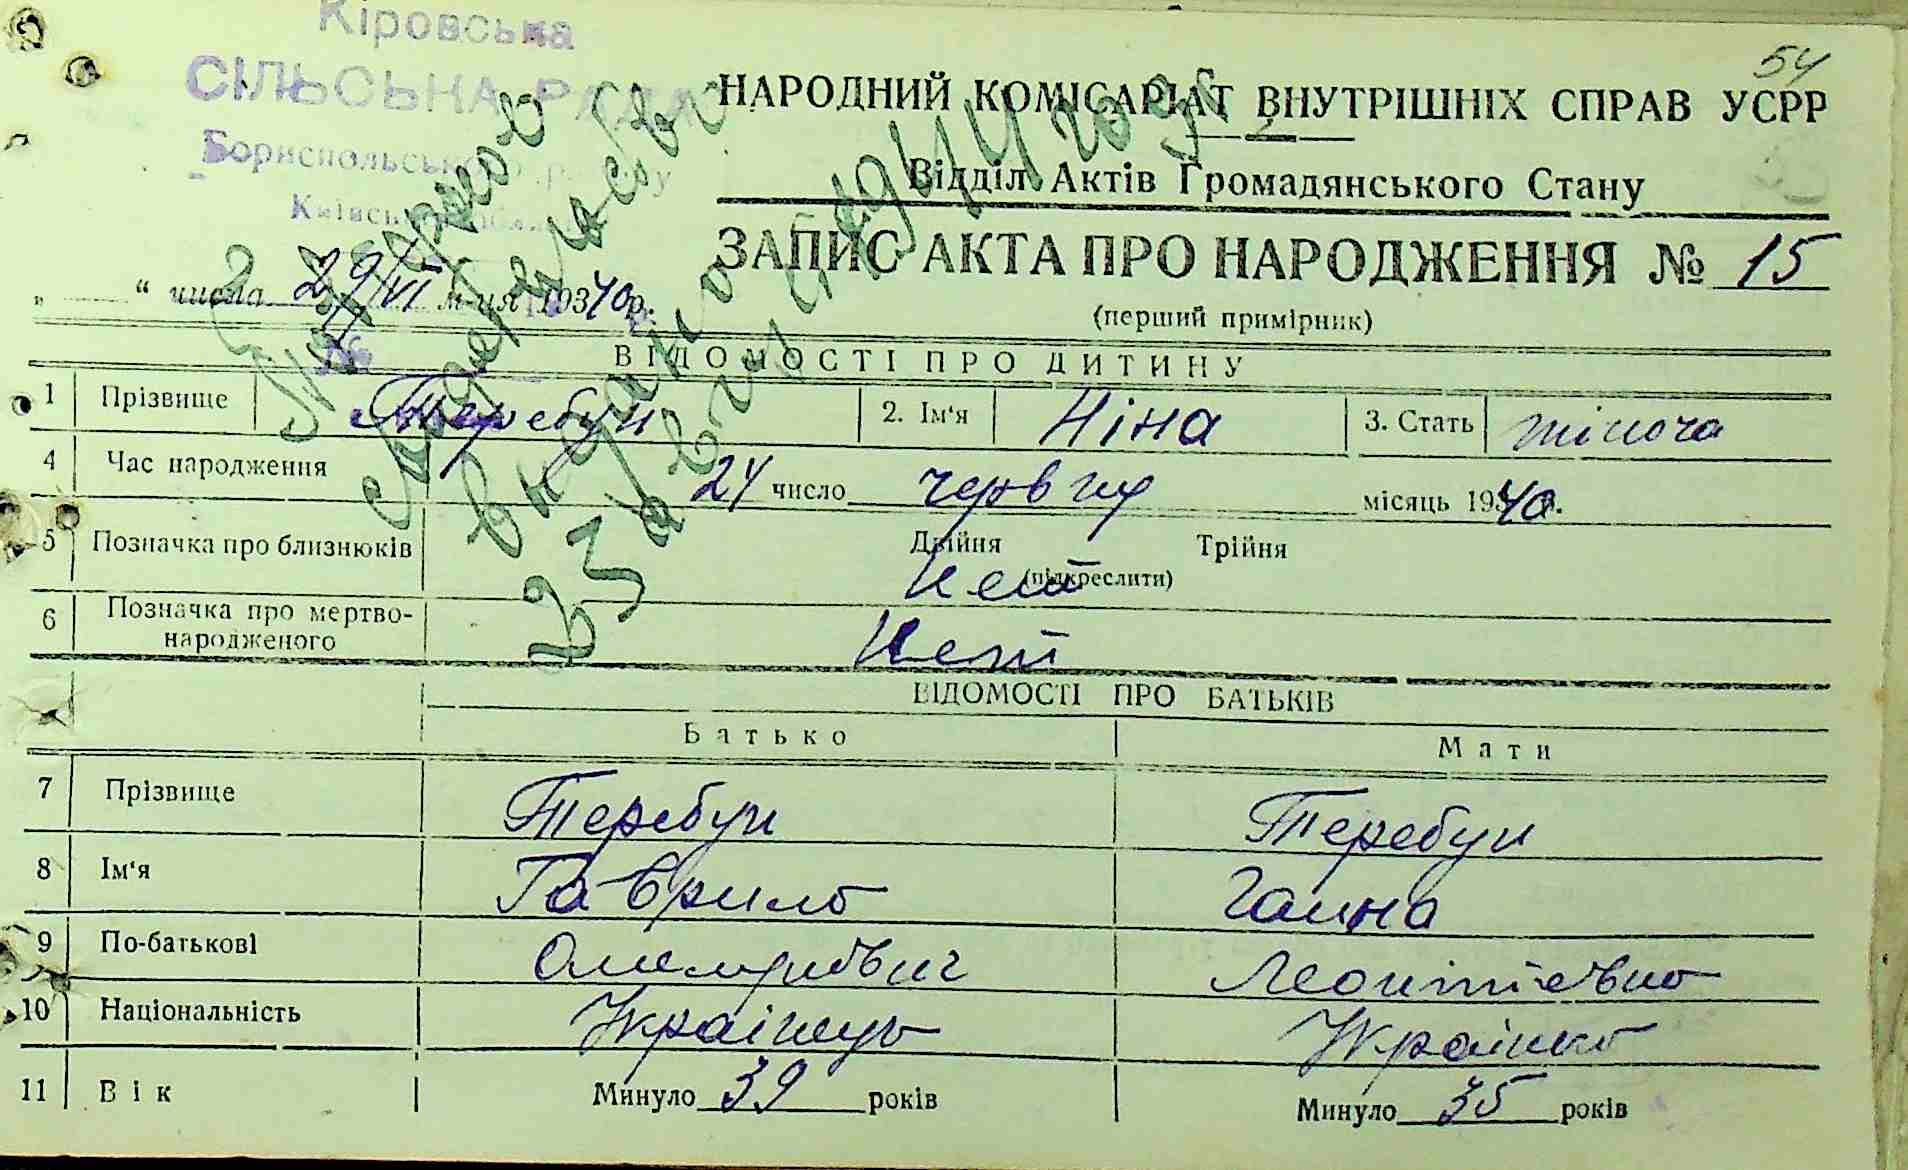 54
Кіровська
СІЛЬСЬКА РАДА
Бориспольського району
Київської
НАРОДНИЙ КОМІСАРІАТ ВНУТРІШНІХ СПРАВ УСРР
Відділ Актів Громадянського Стану
ЗАПИС АКТА ПРО НАРОДЖЕННЯ № 15
(перший примірник)
„ “ числа 29/VI м-ця 1940р.
ВІДОМОСТІ ПРО ДИТИНУ
1 Прізвище Теребун 2. Ім'я Ніна 3. Стать жіноча
4 Час народження 24 число червня місяць 1940 р.
5 Позначка про близнюків Двійня Трійня
(підкреслити)
Нет
6 Позначка про мертво-
народженого Нет
ВІДОМОСТІ ПРО БАТЬКІВ
Батько Мати
7 Прізвище Теребун Теребун
8 Ім'я Гаврило Ганна
9 По-батькові Леонтіевна
10 Національність Украінець Украінка
11 Вік Минуло 39 років Минуло 35 років
видано